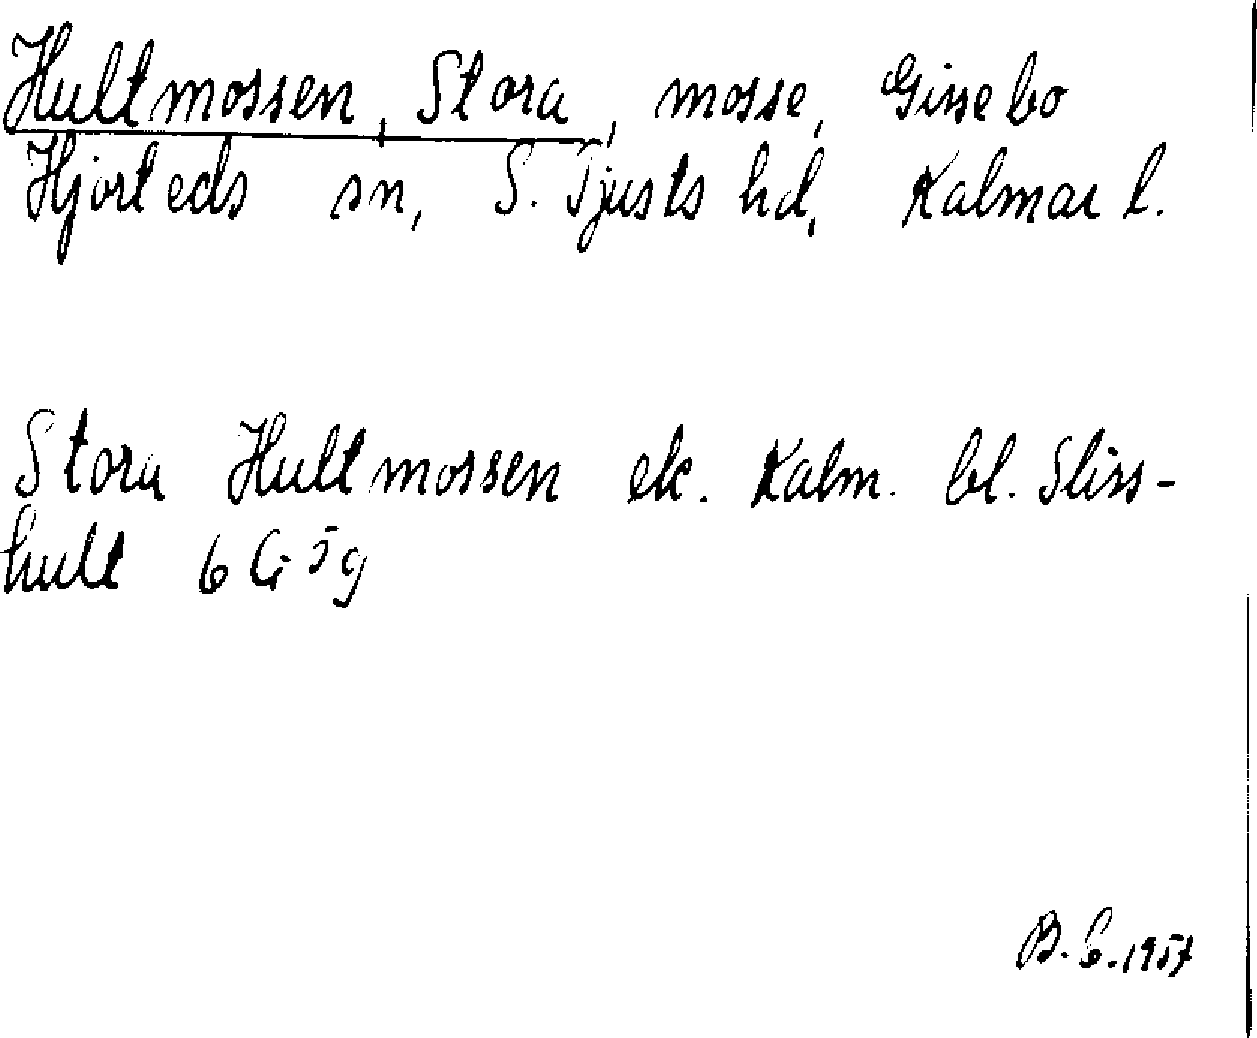 Hultmossen, Stora, mosse, Gissebo
Hjorteds sn, S. Tjusts hd, Kalmar l.
Stora Hultmossen ek. Kalm. bl. Sliss-
hult 6 G 5g
B.E. 1957